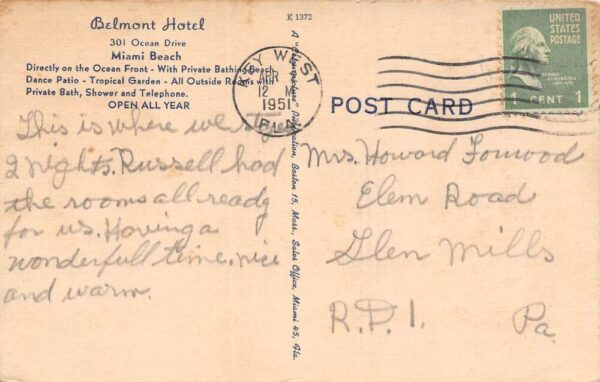 Belmont Hotel
301 Ocean Drive
Miami Beach
Directly on the Ocean Front - With Private Bathing Beach
Dance Patio - Tropical Garden - All Outside Rooms
Private Bath, Shower and Telephone.
OPEN ALL YEAR
This is where we
2 nights. Russell had
the rooms all ready
for us. Having a
wonderfull time. nice
and warm.
K 1372
Publication, Boston 15, Mass. Sales Office, Miami 45, Fla.
KEY WEST
12 M
1951
FLA.
POST CARD
UNITED
STATES
POSTAGE
1 CENT 1
Mrs. Howard
Elem Road
Glen Mills
R.D.1. Pa.